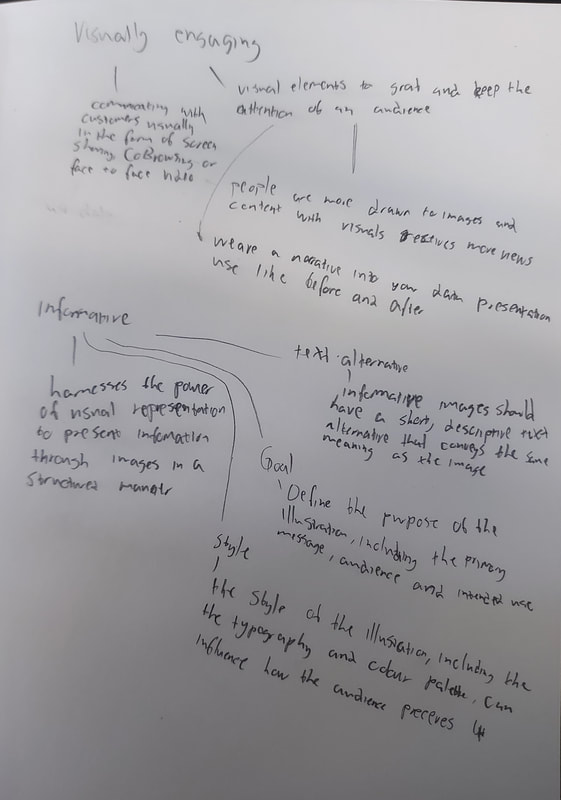 Visually engaging
visual elements to grat and keep the
attention of an audience
commenting with
customers usually
in the form of screen
sharing CoBrowsing or
face to face video
people are more drawn to images and
content with visuals more news
weave a narrative into your data presentation
use like before and after
Informative
text alternative
informative images should
have a short, descriptive text
alternative that conveys the same
meaning as the image
harnesses the power
of visual representation
to present infomation
through images in a
structured
Goal
Define the purpose of the
illustration, including the primary
message, audience and intended use
Style
the style of the illustration, including the
the typography and colour palette, can
influence how the audience